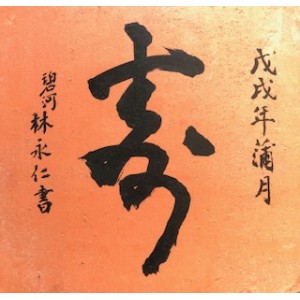 戊戌年蒲月
寿
碧河林永仁書